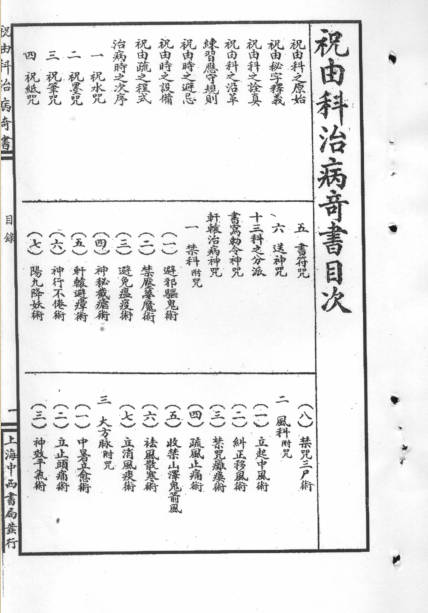 祝由科治病奇書目次
祝由科之原始
祝由秘字釋義
祝由科之詮真
祝由科之沿革
練習應守規則
祝由時之避忌
祝由時之設備
祝由疏之程式
治病時之次序
一 祝水咒
二 祝墨咒
三 祝筆咒
四 祝紙咒
五 書符咒
六 送神咒
十三科之分派
書寫勅令神咒
軒轅治病神咒
一 禁科附咒
(一) 避邪驅鬼術
(二) 禁壓蠱魔術
(三) 避免瘟疫術
(四) 神秘截瘧術
(五) 軒轅避瘴術
(六) 神行不倦術
(七) 陽九降妖術
(八) 禁咒三尸術
二 風科附咒
(一) 立起中風術
(二) 糾正移風術
(三) 禁咒癱瘓術
(四) 疏風止痛術
(五) 收禁山澤鬼箭風
(六) 祛風散寒術
(七) 立消風痰術
三 大方脉附咒
(一) 中暑立愈術
(二) 立止頭痛術
(三) 神效平氣術
祝由科治病奇書
目錄
一
上海中西書局發行